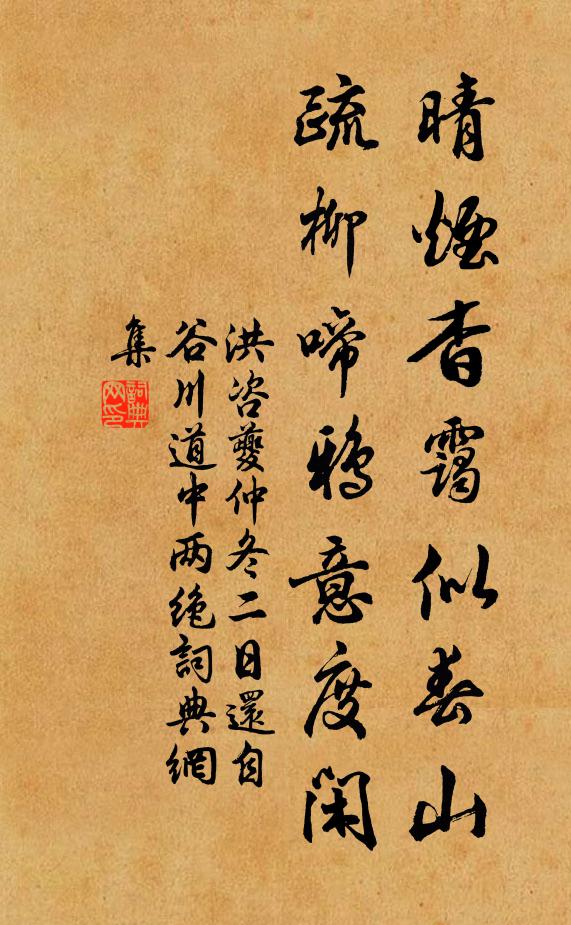 晴煙杳靄似春山
疏柳啼鴉意度閑
洪咨夔仲冬二日還自
谷川道中两絶詞典網
集
詞典
网印